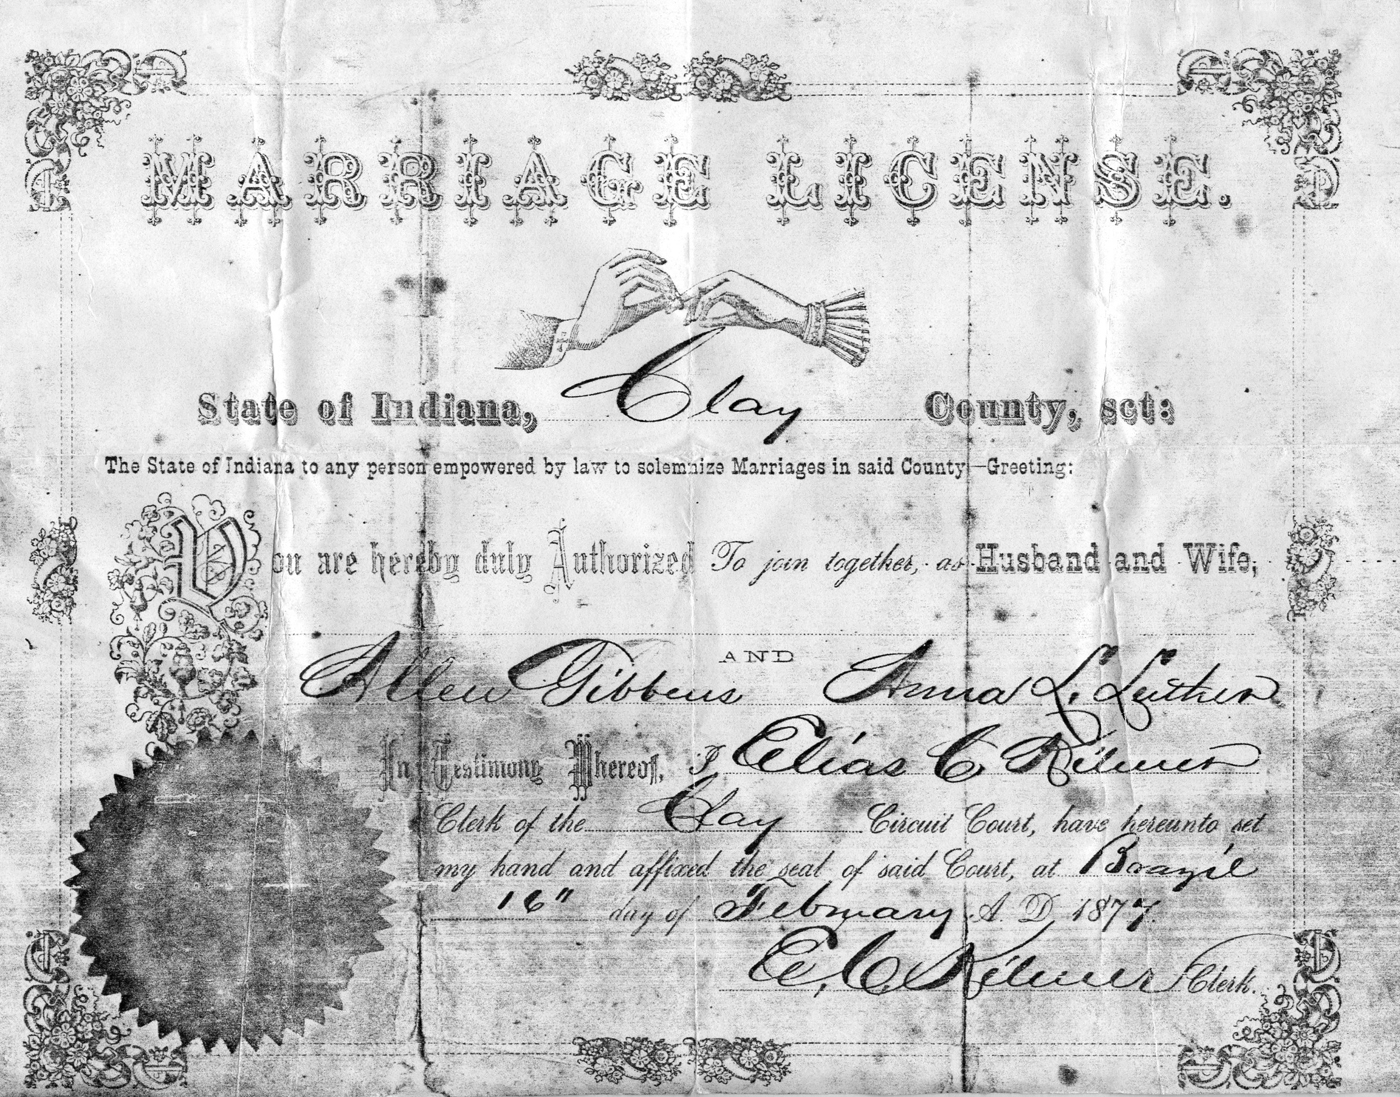 MARRIAGE LICENSE.
State of Indiana, Clay County, sct:
The State of Indiana to any person empowered by law to solemnize Marriages in said County—Greeting:
You are hereby duly Authorized To join together, as Husband and Wife,
Allen Gibbens AND Anna L. Luther
In Testimony Whereof, I Elias C Kilmer
Clerk of the Clay Circuit Court, have hereunto set
my hand and affixed the seal of said Court, at Brazil
16" day of February A. D. 1877
E. C. Kilmer Clerk.